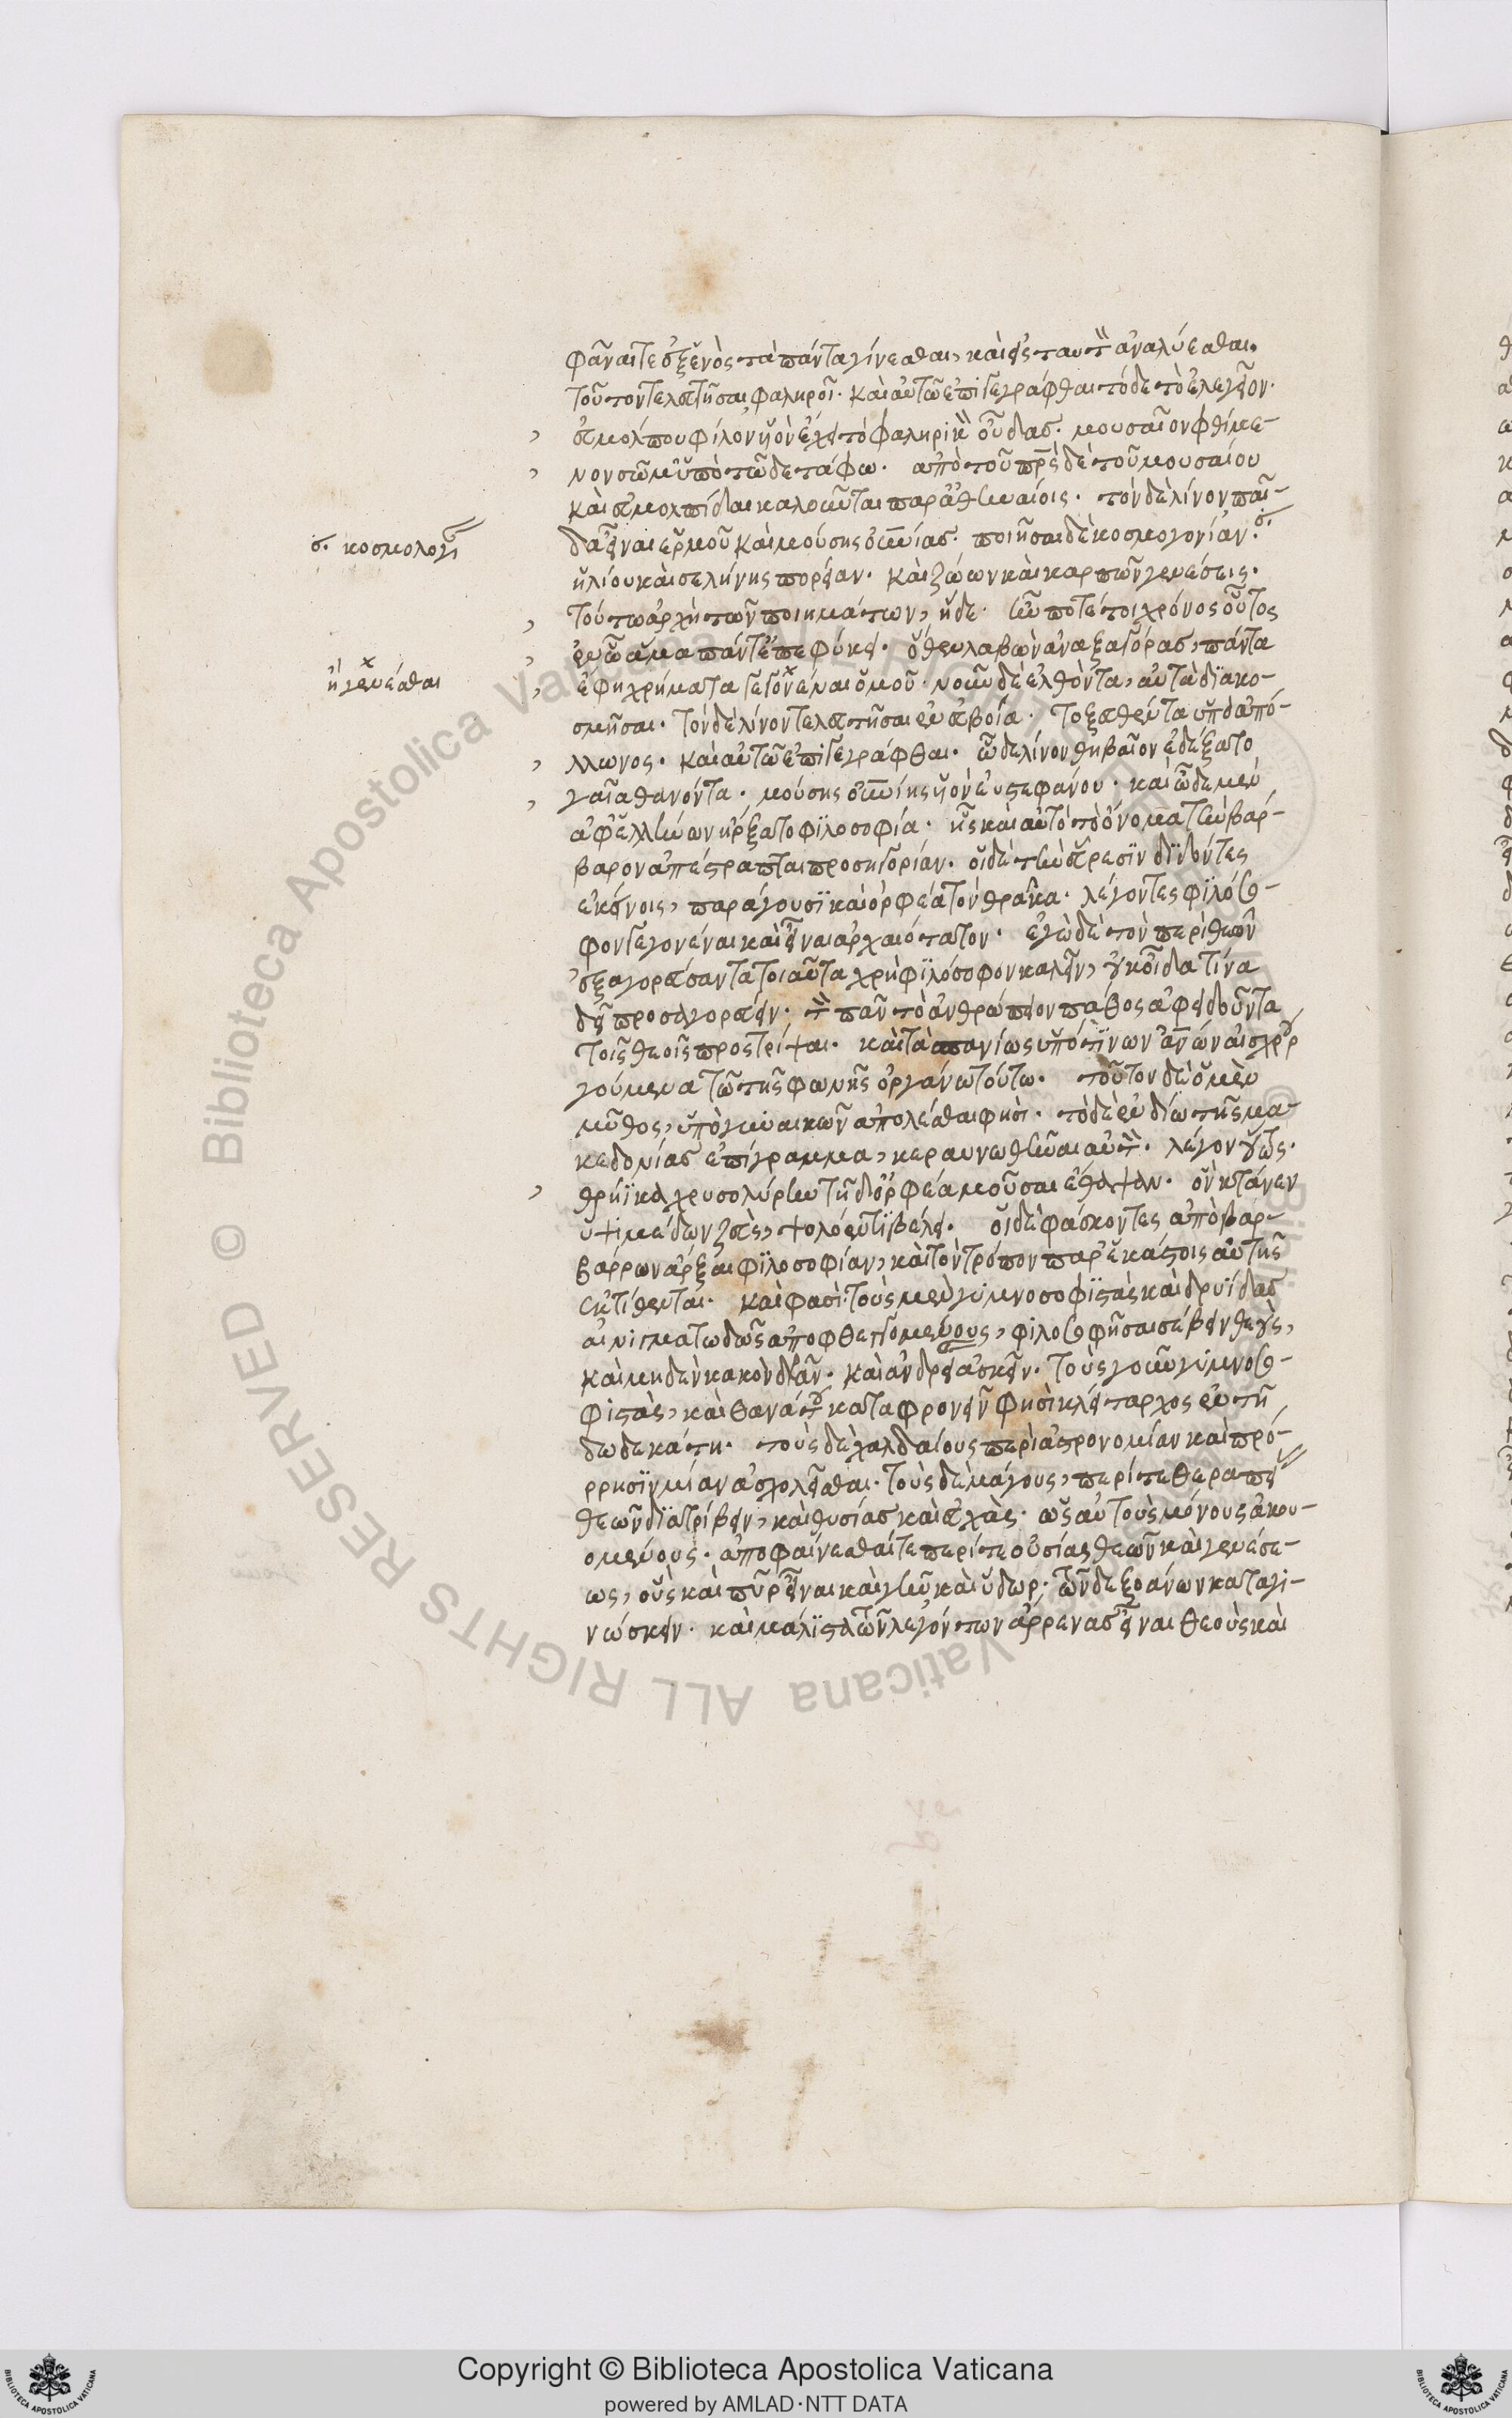 φᾶναί τε ἐξ ἑνὸς τὰ πάντα γίνεσθαι, καὶ εἰς ταυτὸν ἀναλύεσθαι.
τοῦτον τελευτῆσαι φαληροῖ. καὶ αὐτῶ ἐπιγεγράφθαι τόδε τὸ ἐλεγεῖον.
εὐμόλπου φίλον υἱὸν ἔχει τὸ φαληρικὸν οὖδας. μουσαῖον φθίμε-
νον σῶμ' ὑπὸ τῶδε τάφω. ἀπὸ τοῦ πρς δὲ τοῦ μουσαίου
καὶ εὐμολπίδαι καλοῦνται παρ' ἀθηναίοις. τὸν δὲ λίνον παῖ-
δα εἶναι ερμοῦ καὶ μούσης οὐρανίας. ποιῆσαι δὲ κοσμογονίαν.
σ. κοσμολογί
ἡλίου καὶ σελήνης πορείαν. καὶ ζώων καὶ καρπῶν γενέσεις.
τούτω ἀρχὴ τῶν ποιημάτων, ἥδε. ἦν ποτέ τοι χρόνος οὗτος
ἐν ὧ ἅμα πάντ' ἐπεφύκει. ὅθεν λαβὼν ἀναξαγόρας, πάντα
ἔφη χρήματα γεγονέναι ὁμοῦ. νοῦν δὲ ἐλθόντα, αὐτὰ διακο-
ἢ γενέσθαι
σμῆσαι. τὸν δὲ λίνον τελευτῆσαι ἐν εὐβοία. τοξευθέντα ὑπὸ ἀπό-
λλωνος. καὶ αὐτῶ ἐπιγεγράφθαι. ὧδε λίνον θηβαῖον ἐδέξατο
γαῖα θανόντα. μούσης οὐρανίης υἱὸν ἐυστεφάνου. καὶ ὧδε μὲν
ἀφ' ἑλλήνων ἤρξατο φιλοσοφία. ἧς καὶ αὐτὸ τὸ ὄνομα τὴν βάρ-
βαρον ἀπέστραπται προσηγορίαν. οἱ δὲ τὴν εὕρεσιν διδόντες
ἐκείνοις, παράγουσι καὶ ὀρφέα τὸν θρᾶκα. λέγοντες φιλόσο-
φον γεγονέναι καὶ εἶναι ἀρχαιότατον. ἐγὼ δὲ τὸν περὶ θεῶν
ἐξαγορεύσαντα τοιαῦτα χρὴ φιλόσοφον καλεῖν, οὐκ οἶδα τίνα
δεῖ προσαγορεύειν. τὸν πᾶν τὸ ἀνθρώπειον πάθος ἀφειδοῦντα
τοῖς θεοῖς προστρίψαι. καὶ τὰ σπανίως ὑπό τινων ἀνῶν αἰσχρουρ
γούμενα τῶ τῆς φωνῆς ὀργάνω τούτω. τοῦτον δὲ ὁ μὲν
μῦθος, ὑπὸ γυναικῶν ἀπολέσθαι φησὶ. τὸ δὲ ἐν δίω τῆς μα-
κεδονίας ἐπίγραμμα, κεραυνωθῆναι αὐτὸν. λέγον οὕτως.
θρήϊκα χρυσολύρην τῆδ' ὀρφέα μοῦσαι ἔθαψαν. ὃν κτάνεν
ὑψιμέδων ζεὺς, ψολόεντι βέλει. οἱ δὲ φάσκοντες ἀπὸ βαρ-
βάρων ἄρξαι φιλοσοφίαν, καὶ τὸν τρόπον παρ' ἑκάστοις αὐτῆς
ἐκτίθενται. καὶ φασὶ. τοὺς μὲν γυμνοσοφιστὰς καὶ δρυΐδας
αἰνιγματωδῶς ἀποφθεγγομένους, φιλοσοφῆσαι σέβειν θεοὺς,
καὶ μηδὲν κακὸν δρᾶν. καὶ ἀνδρείαν ἀσκεῖν. τοὺς γοῦν γυμνοσο-
φιστὰς, καὶ θανάτου καταφρονεῖν φησὶ κλείταρχος ἐν τῆ
δωδεκάτη. τοὺς δὲ χαλδαίους περὶ ἀστρονομίαν καὶ πρό-
ρρησιν μίαν ἀσχολεῖσθαι. τοὺς δὲ μάγους, περί τε θεραπείας
θεῶν διατρίβειν, καὶ θυσίας καὶ εὐχὰς. ὡς αὐτοὺς μόνους ἀκου-
ομένους. ἀποφαίνεσθαί τε περί τε οὐσίας θεῶν καὶ γενέσε-
ως, οὓς καὶ πῦρ εἶναι καὶ γῆν καὶ ὕδωρ. τῶν δὲ ξοάνων καταγι-
νώσκειν. καὶ μάλιστα τῶν λεγόντων ἄρρενας εἶναι θεοὺς καὶ
© Biblioteca Apostolica Vaticana ALL RIGHTS RESERVED
Copyright © Biblioteca Apostolica Vaticana
powered by AMLAD·NTT DATA
BIBLIOTECA APOSTOLICA VATICANA
BIBLIOTECA APOSTOLICA VATICANA